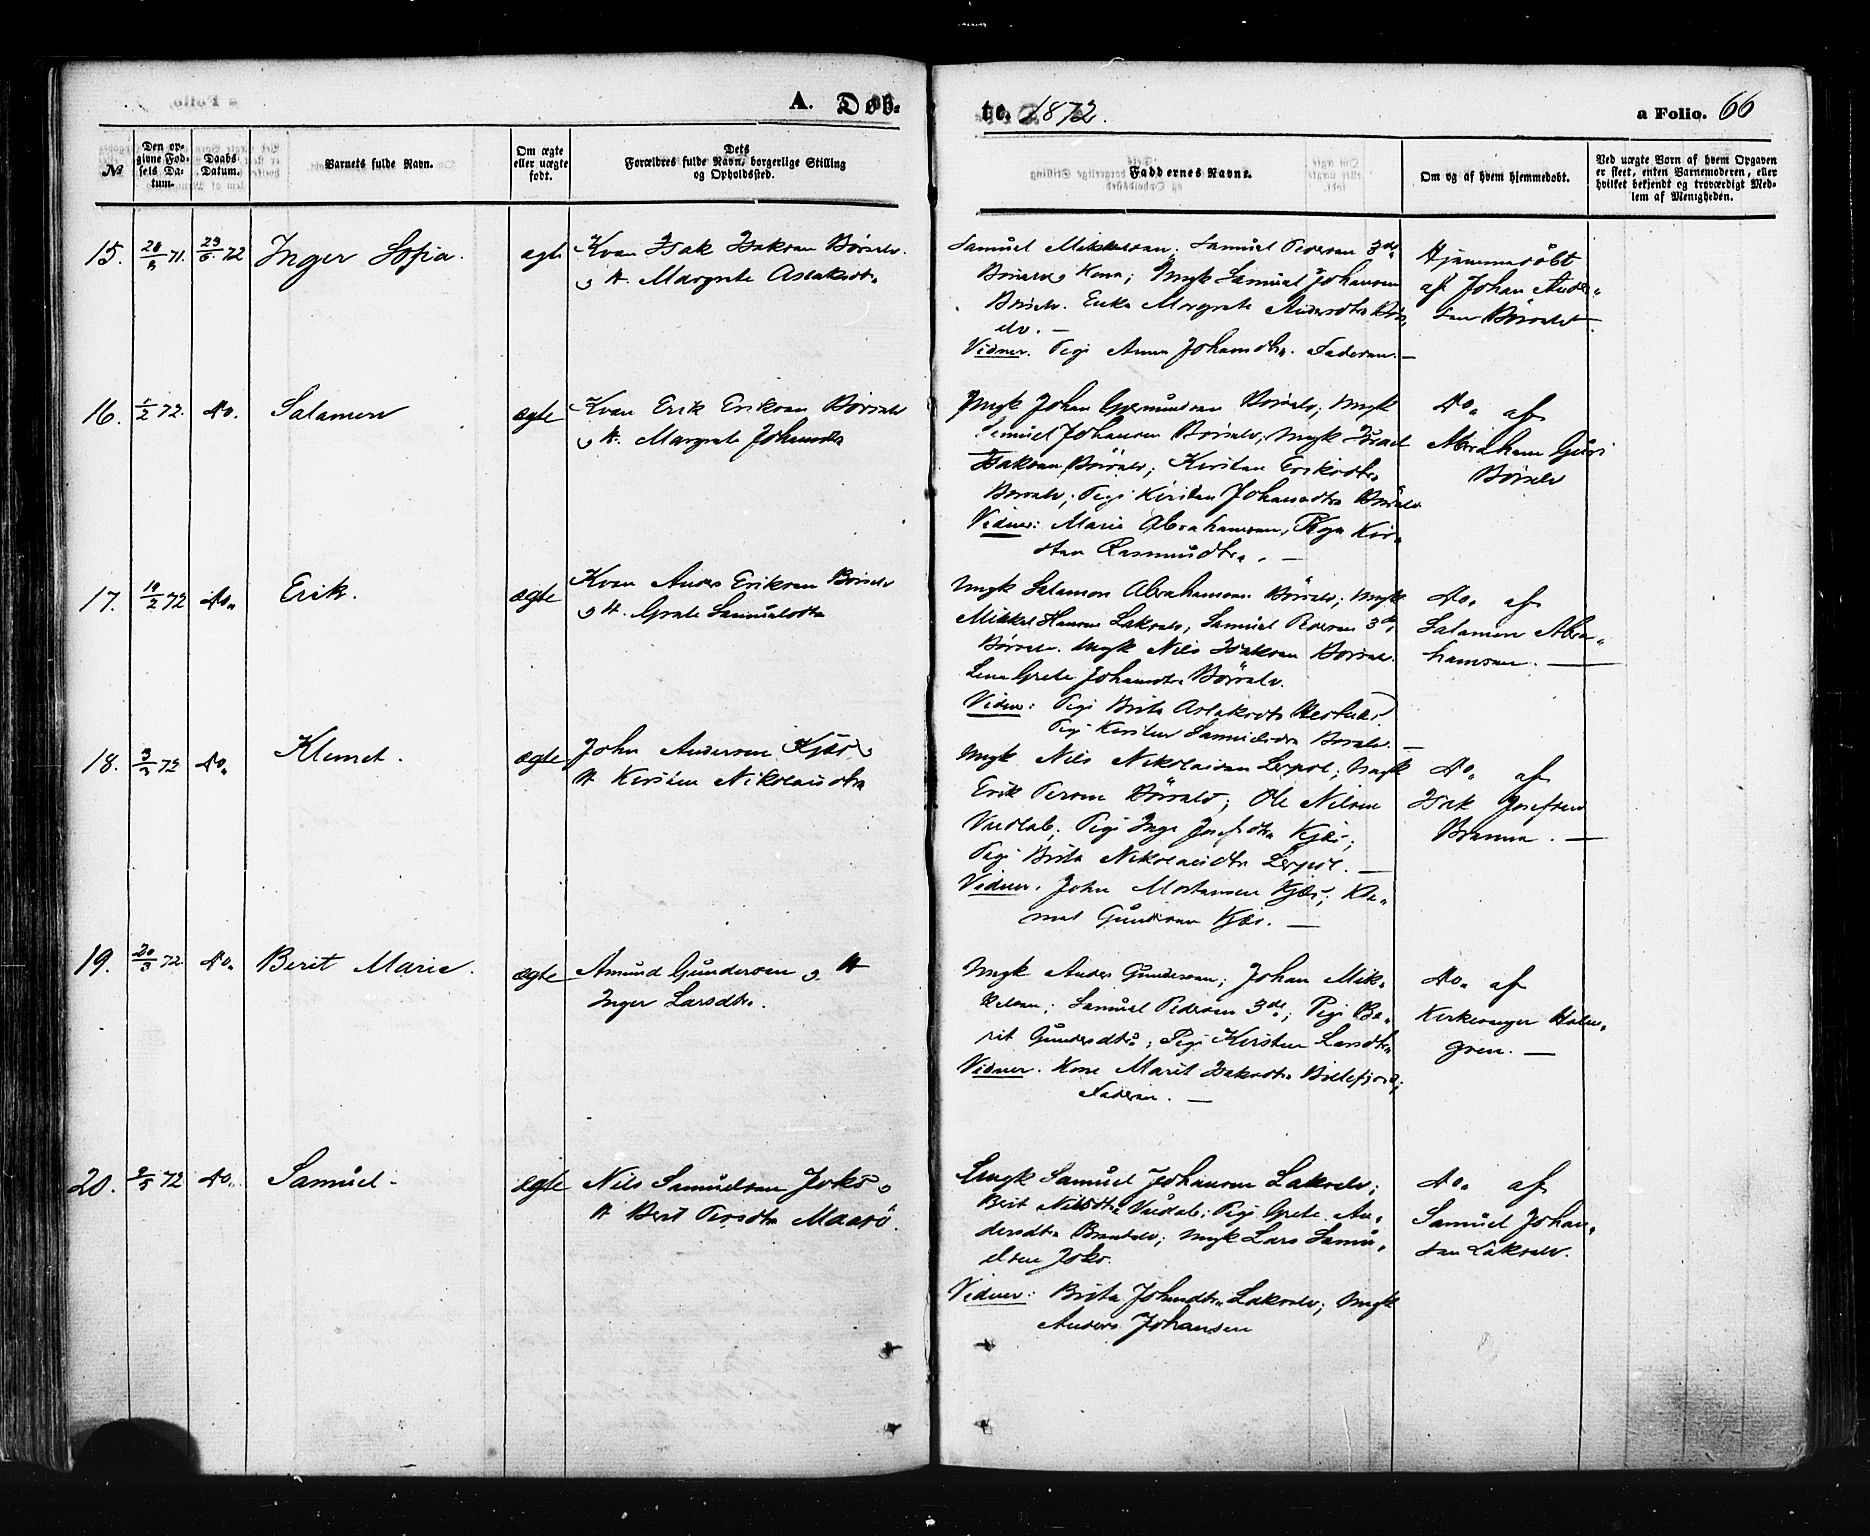 A. Døb-
te. 1872.
a Folio. 66
№
Den op-
givne Fød-
sels Da-
tum.
Daabs
Datum.
Barnets fulde Navn.
Om ægte
eller uægte
født.
Dets
Forældres fulde Navn, borgerlige Stilling
og Opholdssted.
Faddernes Navne.
Om og af hvem hjemmedøbt.
Ved uægte Børn af hvem Opgaven
er skeet, enten Barnemoderen, eller
hvilket bekjendt og troværdigt Med-
lem af Menigheden.
15. 71. 72 Inger Sofia. ægte
Kvæn Isak Isaksen Børselv.
og H. Margrete Aslaksdtr
Samuel Mikkelsen. Samuel Pedersen 3de
Børselv Kona; Ungk Samuel Johansen
Børselv. Enke Margrete Andersdtr Børs-
elv. —
Vidner. Pige Anna Johansdtr. Faderen. —
Hjemmedøbt
af Johan Ander-
sen Børselv
16. 1/2 72. Do. Salamon ægte
Kvæn Erik Eriksen Børselv
og H. Margrete Johansdtr
Ungk Johan Børselv; Ungk
Samuel Johansen Børselv; Ungk Israel
Isaksen Børselv; Kirsten Eriksdtr
Børselv; Pige Kirsten Johansdtr Børselv
Vidner: Marie Abrahamsen, Kir-
sten Rasmusdtr. —
Do. af
Abraham
Børselv
17. 10/2 72 Do. Erik. ægte
Kvæn Anders Eriksen Børselv
og H. Grete Samuelsdtr
Ungk Salamon Abrahamsen Børselv; Ungk
Mikkel Hansen Lakselv; Samuel Pedersen 3de
Børselv. Ungk Nils Isaksen Børselv.
Lena Grete Johansdtr Børselv.
Vidner: Pige Brita Aslaksdtr
Pige Kirsten Samuelsdtr Børselv. —
Do. af
Salamon Abra-
hamsen. —
18. 72 Do. Klemet. ægte
John Andersen Kjæs og
H. Kirsten Nikolaisdtr
Ungk Nils Nikolaisen Leirpol; Ungk
Erik Persen Børselv; Ole Nilsen
Pige Inga Josefsdtr Kjæs;
Pige Brita Nikolaisdtr Leirpol. —
Vidner. John Mortensen Kjæs; Kle-
met Gundersen Kjæs. —
Do. af
Isak Josefsen
Brenna. —
19. 20/3 72 Do. Berit Marie. ægte
Amund Gundersen og H.
Inger Larsdtr.
Ungk Anders Gundersen; Johan Mik-
kelsen; Samuel Pedersen 3de; Pige Be-
rit Gundersdtr; Pige Kirsten Larsdtr
Vidner. Kone Marit Isaksdtr Billefjord;
Faderen. —
Do. af
Kirkesanger Holm-
gren. —
20. 72 Do. Samuel. ægte
Nils Samuelsen Joks og
H. Berit Persdtr Maasø.
Ungk Samuel Johansen Lakselv;
Berit Nilsdtr Pige Grete An-
dersdtr Ungk Lars Samu-
elsen Joks.
Vidner: Brita Johnsdtr Lakselv; Ungk
Anders Johansen
Do. af
Samuel Johan-
sen Lakselv.